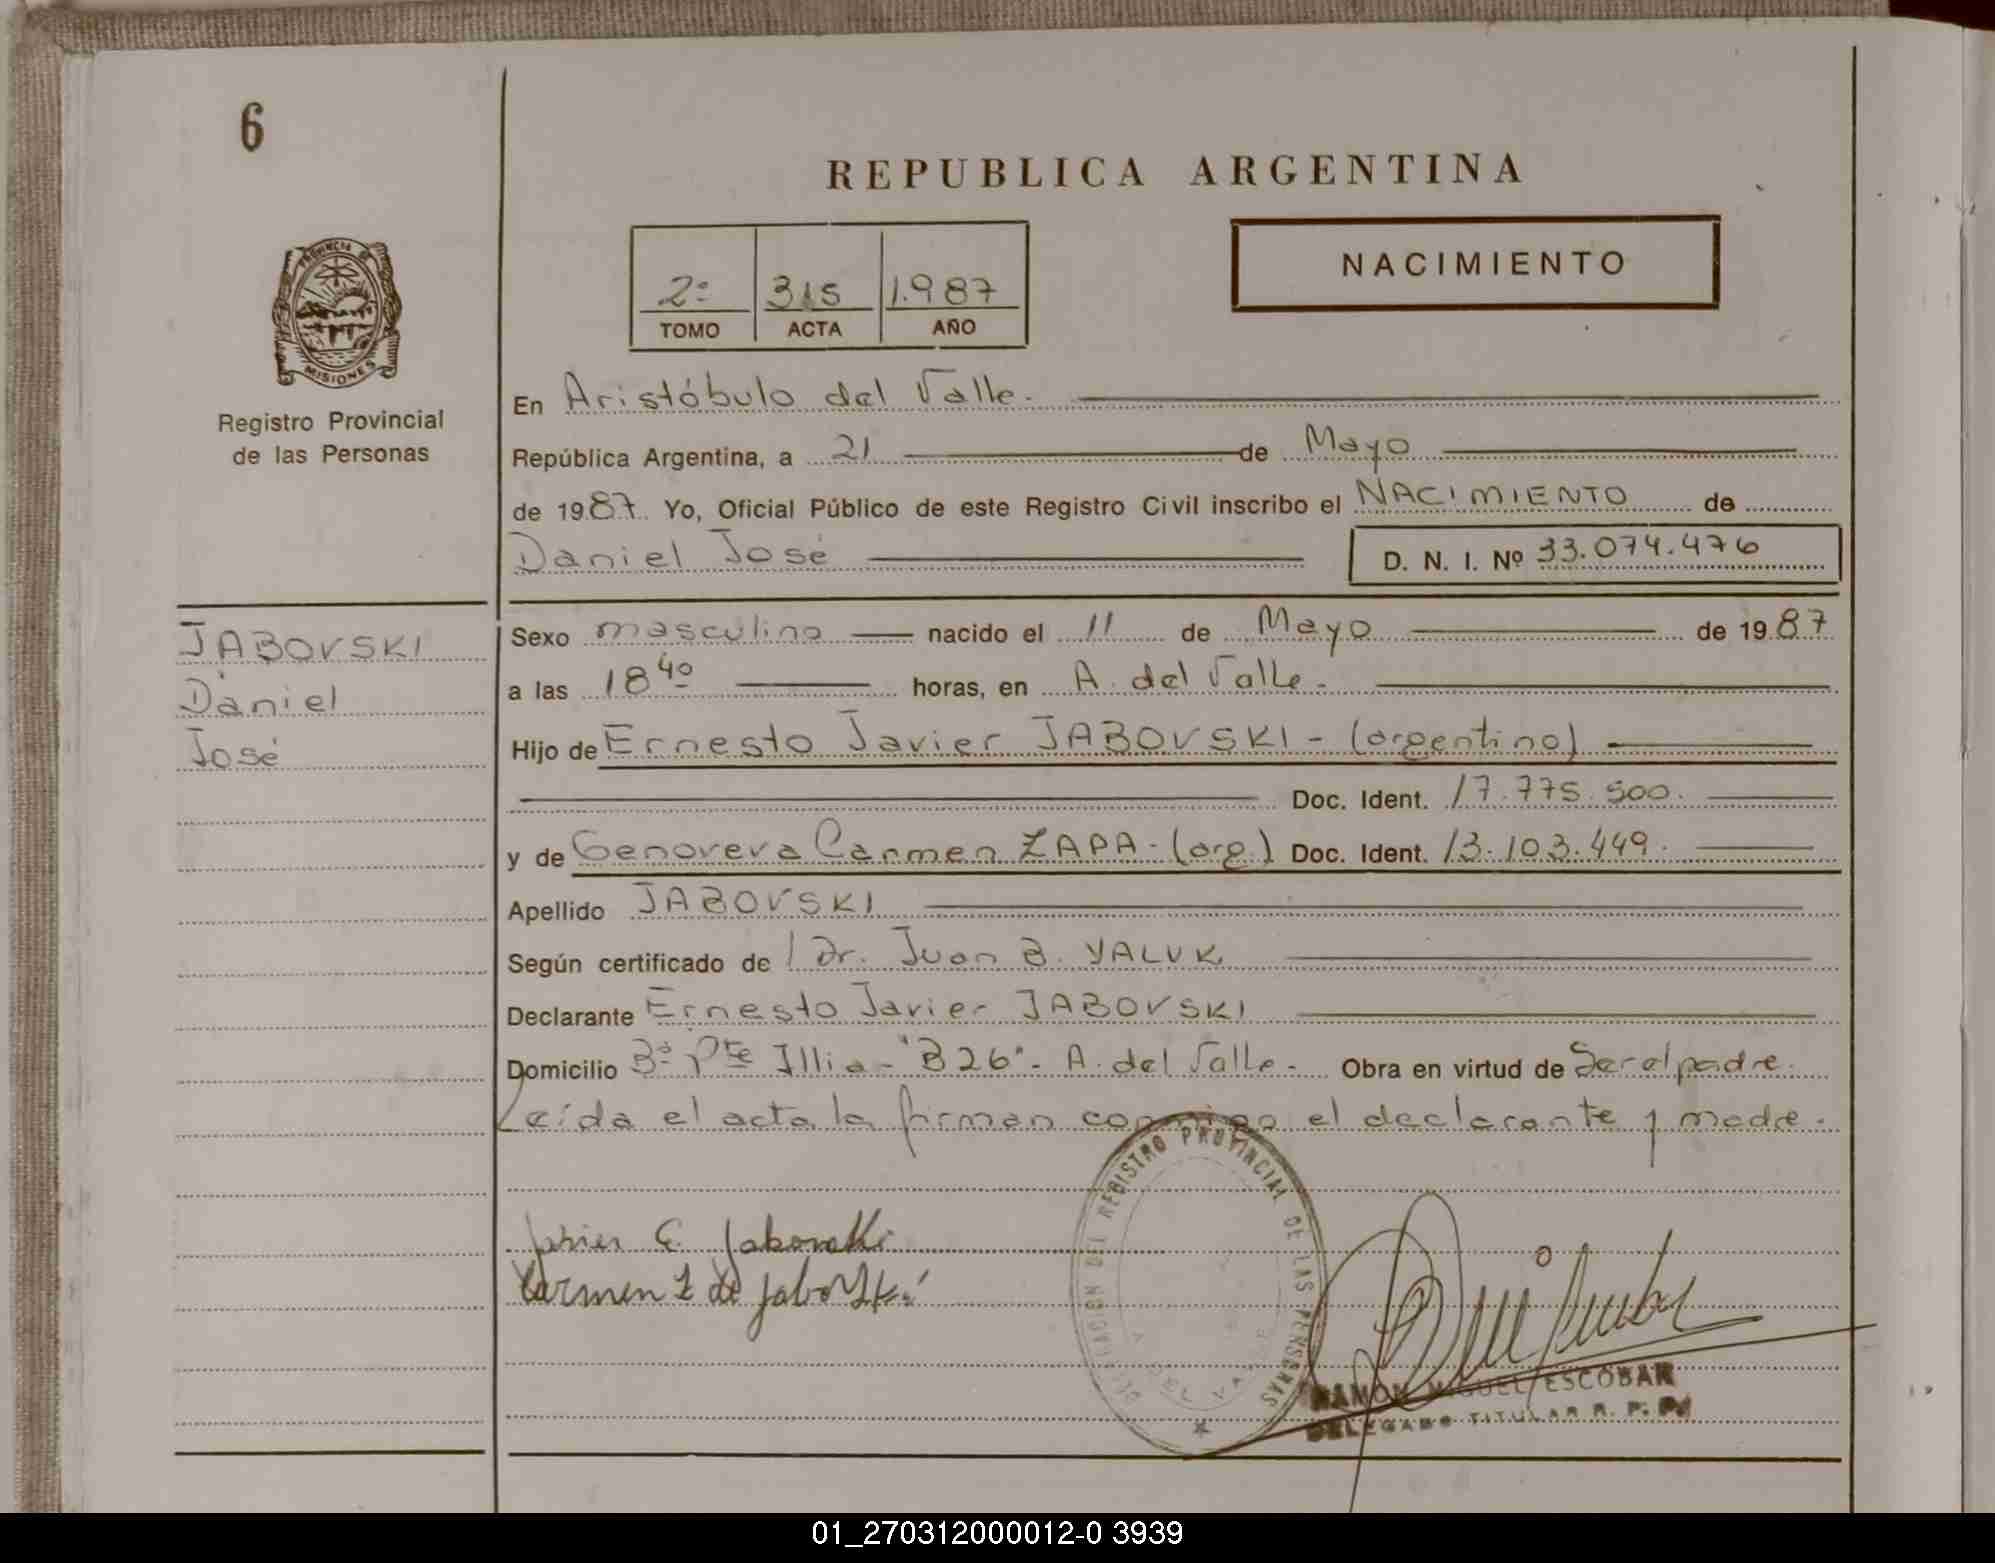 6
REPUBLICA ARGENTINA
NACIMIENTO
2º 315 1.987
TOMO ACTA AÑO
PROVINCIA DE
MISIONES
Registro Provincial
de las Personas
En Aristóbulo del Valle.
República Argentina, a 21 de Mayo
de 1987. Yo, Oficial Público de este Registro Civil inscribo el NACIMIENTO de
Daniel José D. N. I. Nº 33.074.476
JABOVSKI
Daniel
José
Sexo masculino nacido el 11 de Mayo de 1987
a las 18 40 horas, en A. del Valle.
Hijo de Ernesto Javier JABOVSKI - (argentino)
Doc. Ident. 17.775.500.
y de Genoveva Carmen ZAPA - (arg.) Doc. Ident. 13.103.449.
Apellido JABOVSKI
Según certificado de Dr. Juan B. YALUK
Declarante Ernesto Javier JABOVSKI
Domicilio Bº Pte Illia - "B26" - A. del Valle. Obra en virtud de Ser el padre.
Leída el acta la firman conmigo el declarante y madre.
Javier E. Jabovski
Carmen Z de Jabovski
DELEGACION DEL REGISTRO PROVINCIAL DE LAS PERSONAS
A. DEL VALLE
RAMON MIGUEL ESCOBAR
DELEGADO TITULAR R. P. P.
01_270312000012-0 3939